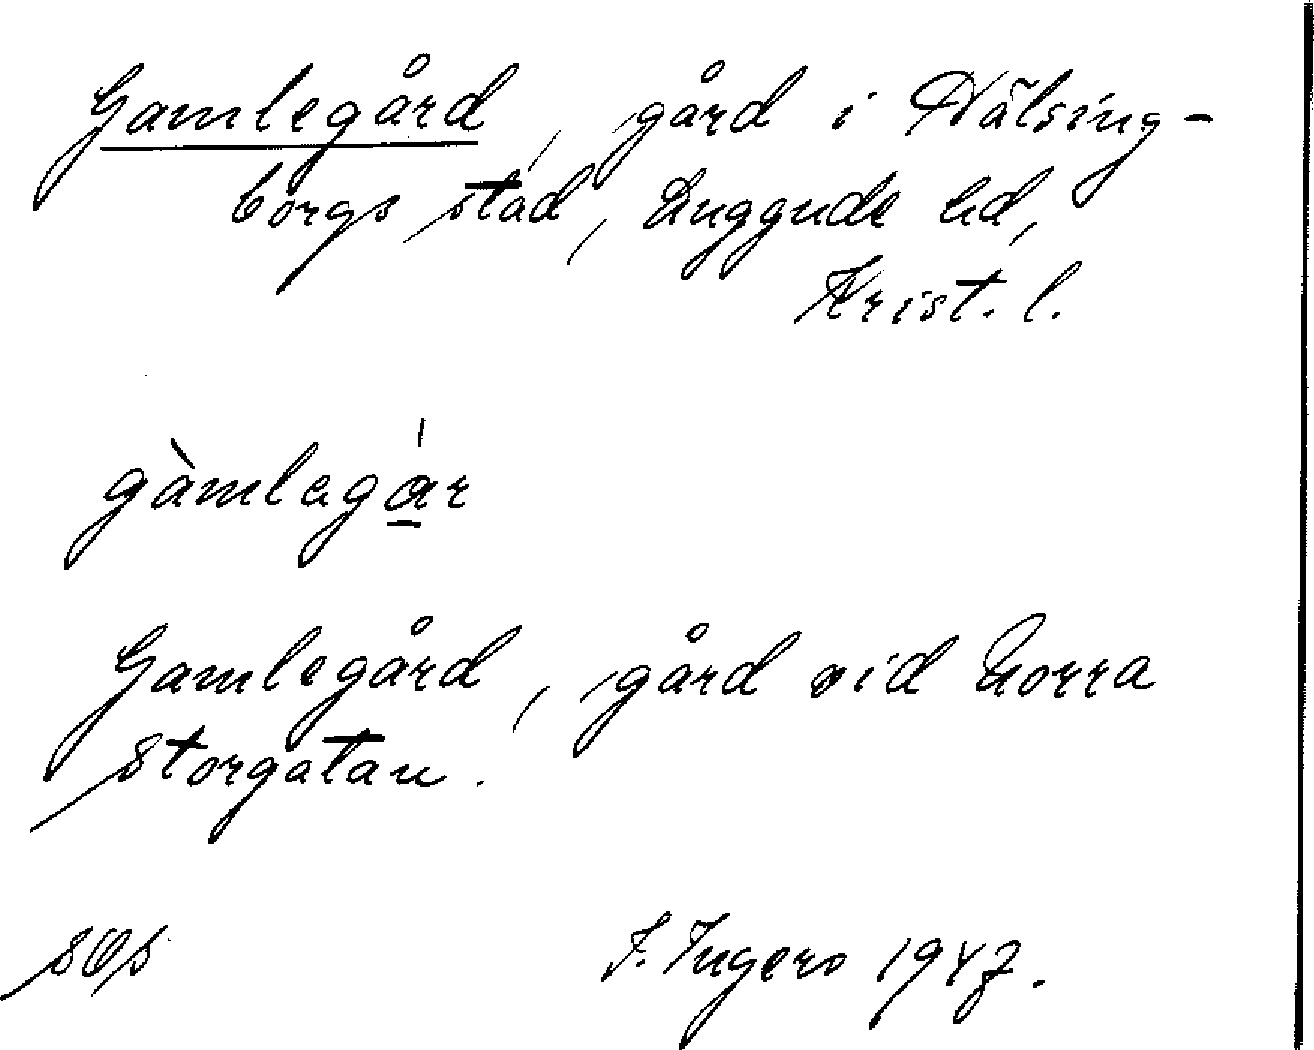 Gamlegård, gård i Hälsing-
borgs stad, Luggude hd,
Krist. l.
gàmlegá̱r
Gamlegård, gård vid Norra
Storgatan.
J. Ingers 1947.